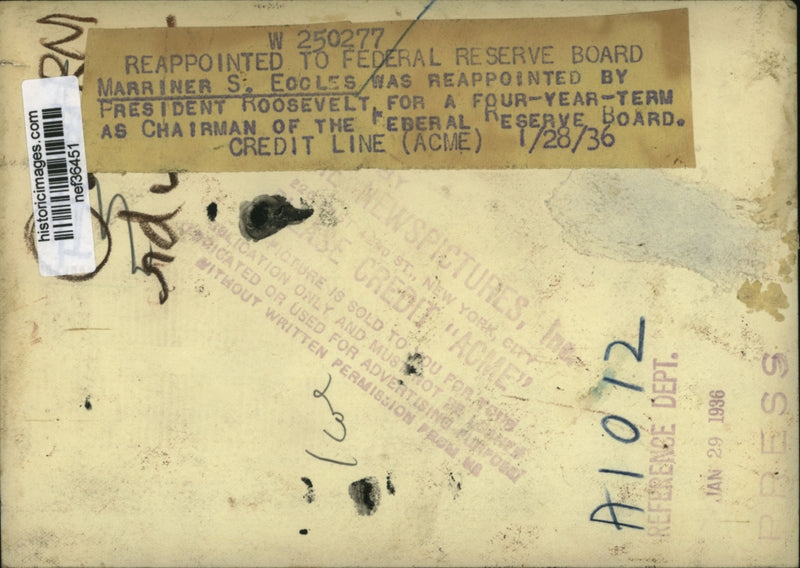 W 250277
REAPPOINTED TO FEDERAL RESERVE BOARD
MARRINER S. ECCLES WAS REAPPOINTED BY
PRESIDENT ROOSEVELT, FOR A FOUR-YEAR-TERM
AS CHAIRMAN OF THE FEBERAL RESERVE BOARD.
CREDIT LINE (ACME) 1/28/36
historicimages.com
nef36451
NEWSPICTURES, Inc.
ST., NEW YORK, CITY
CREDIT "ACME"
PICTURE IS SOLD TO YOU FOR
PUBLICATION ONLY AND MUST NOT
OR USED FOR ADVERTISING PURPOSES
WITHOUT WRITTEN PERMISSION FROM US
A1012
REFERENCE DEPT.
JAN 29 1936
PRESS